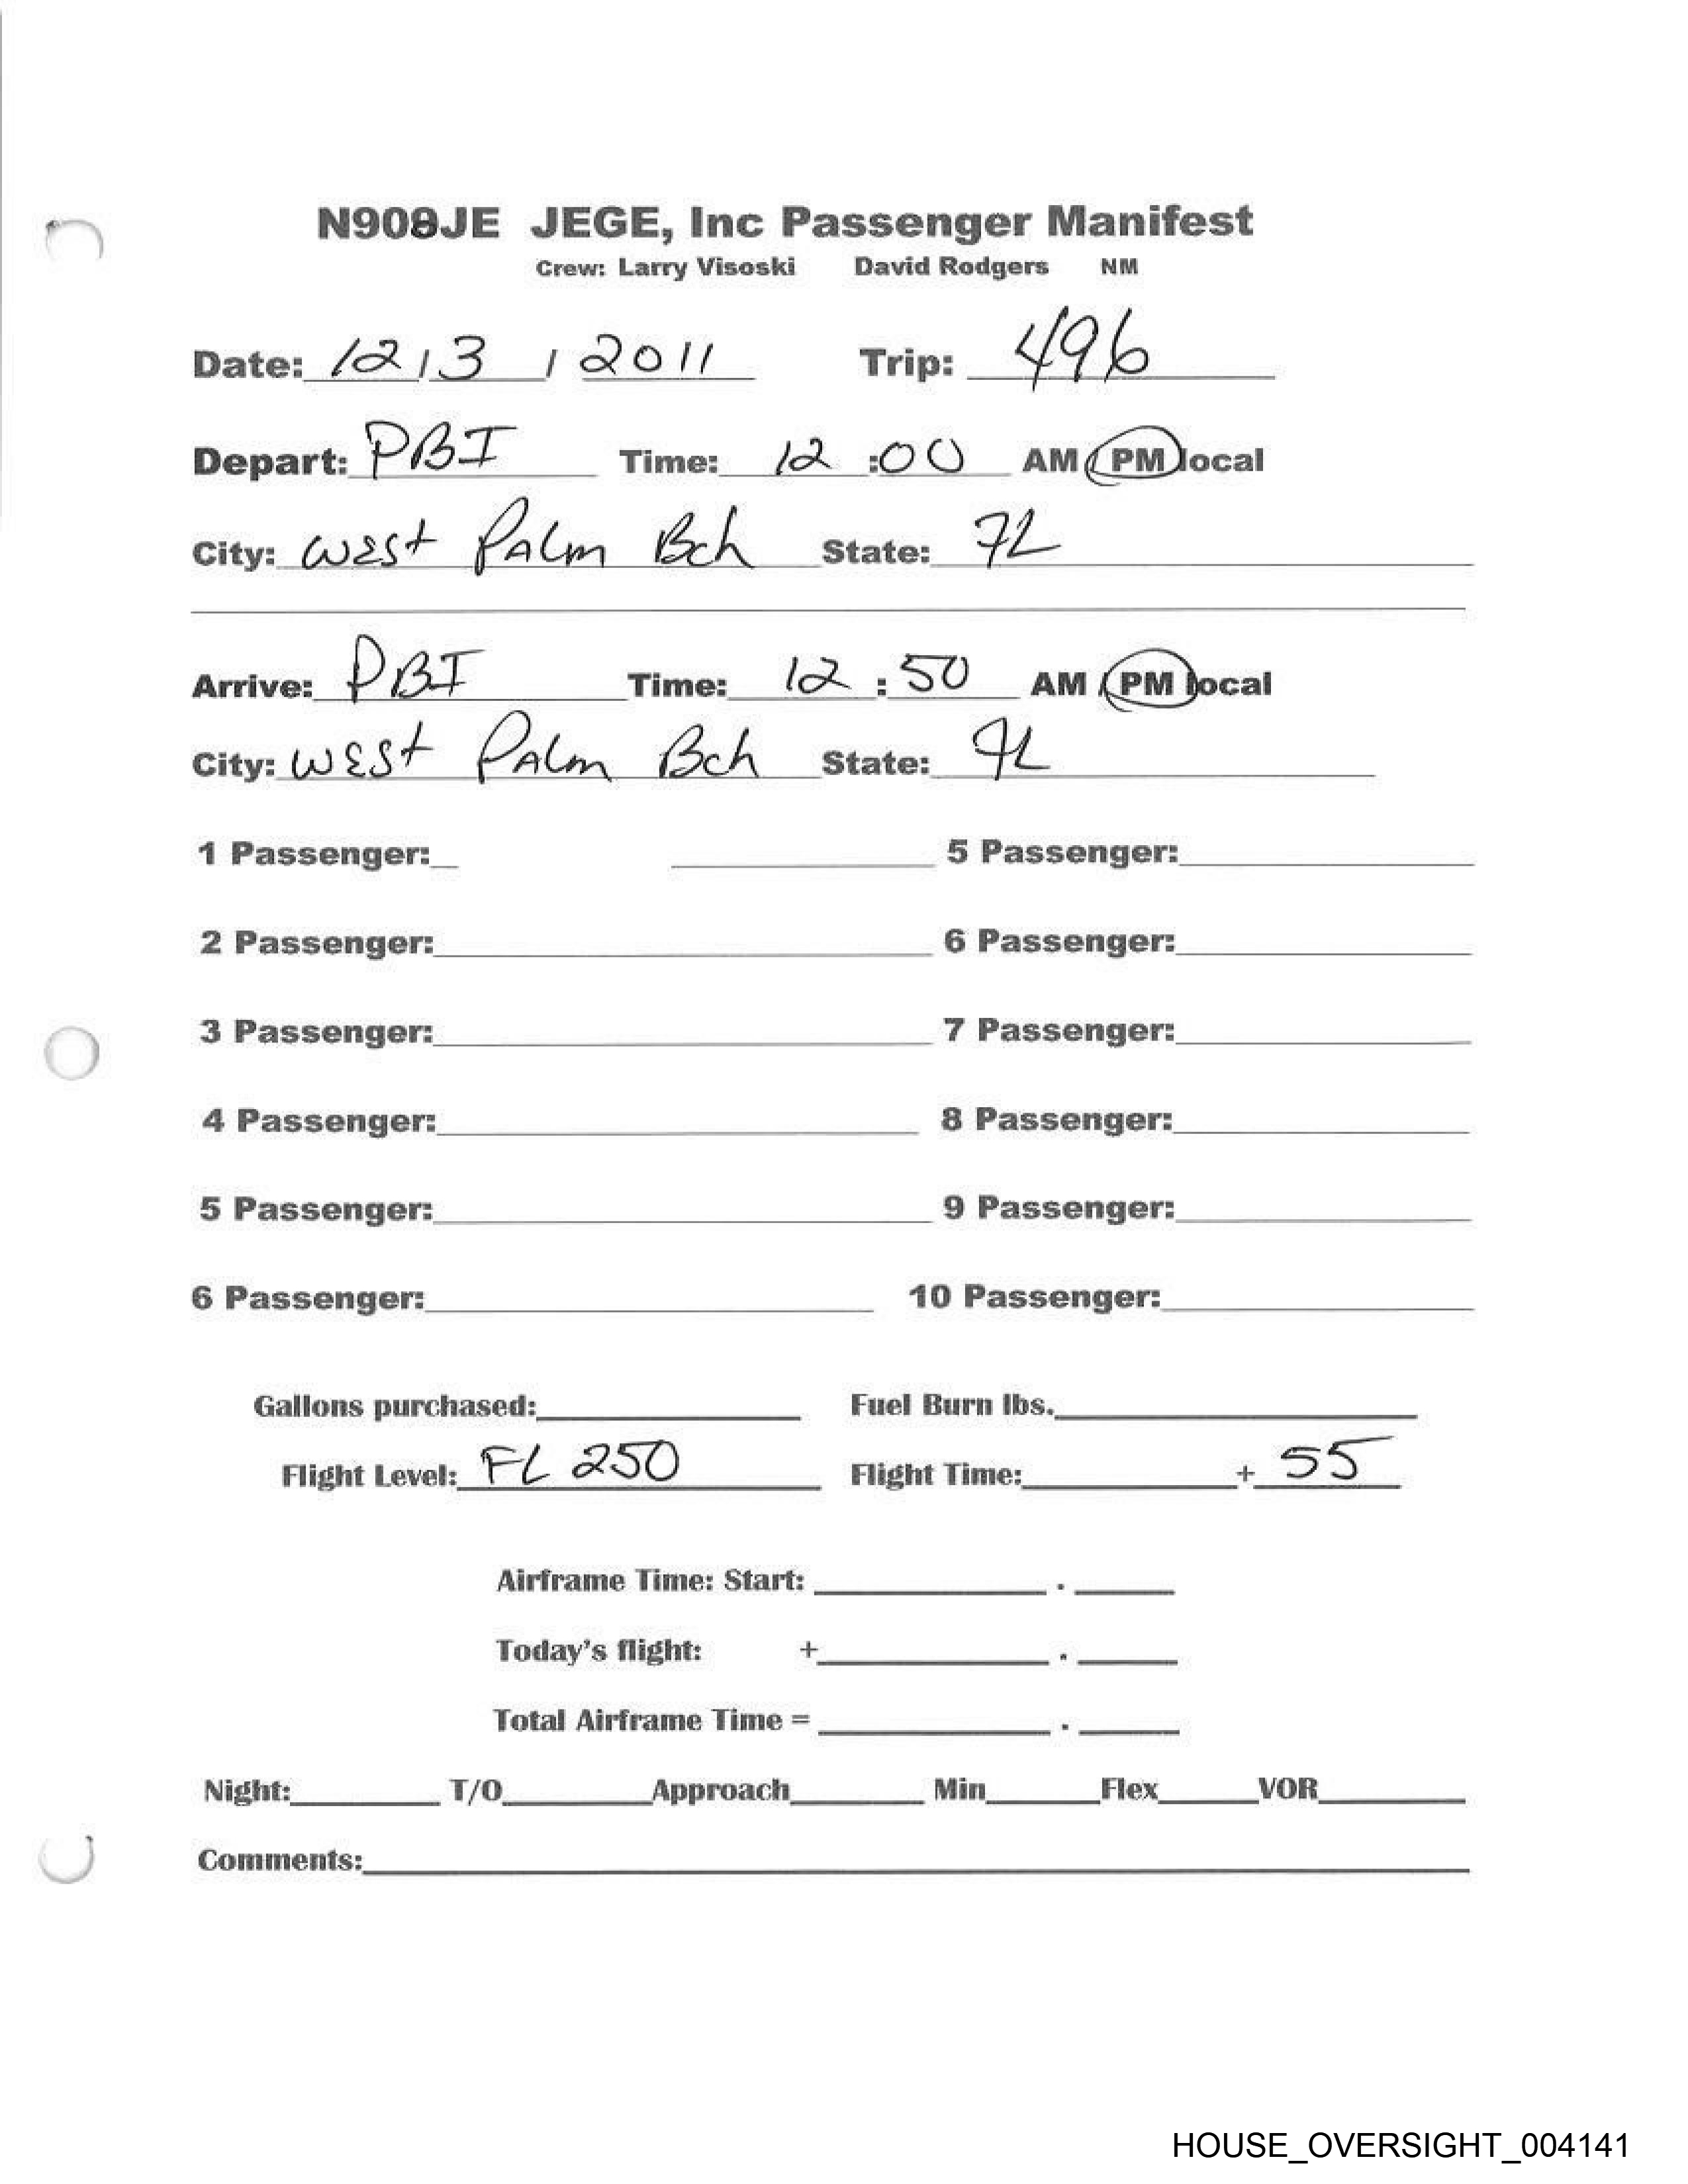 N908JE JEGE, Inc Passenger Manifest
Crew: Larry Visoski David Rodgers NM
Date: 12 / 3 / 2011 Trip: 496
Depart: PBI Time: 12 :00 AM / PM local
City: West Palm Bch State: FL
Arrive: PBI Time: 12 : 50 AM / PM local
City: West Palm Bch State: FL
1 Passenger: 5 Passenger:
2 Passenger: 6 Passenger:
3 Passenger: 7 Passenger:
4 Passenger: 8 Passenger:
5 Passenger: 9 Passenger:
6 Passenger: 10 Passenger:
Gallons purchased: Fuel Burn lbs.
Flight Level: FL 250 Flight Time: + 55
Airframe Time: Start: .
Today's flight: + .
Total Airframe Time = .
Night: T/O Approach Min Flex VOR
Comments:
HOUSE_OVERSIGHT_004141